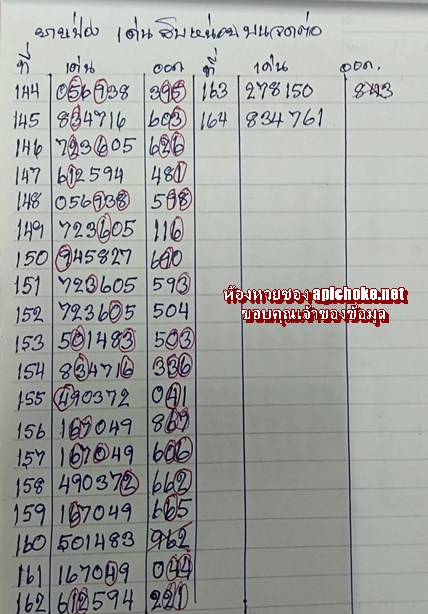 ชายป่อง เด่น สิบหน่วย บน เจดต่อ
ที่ เด่น ออก ที่ เด่น ออก.
144 056938 395 163 278150 843
145 834716 603 164 834761
146 723605 626
147 612594 481
148 056938 598
149 723605 116
150 945827 690
151 723605 593
152 723605 504
153 501483 503
154 834716 336
155 490372 041
156 167049 867
157 167049 606
158 490372 662
159 167049 665
160 501483 962
161 167049 044
162 612594 221
ห้องหวยซอง apichoke.net
ขอบคุณเจ้าของข้อมูล